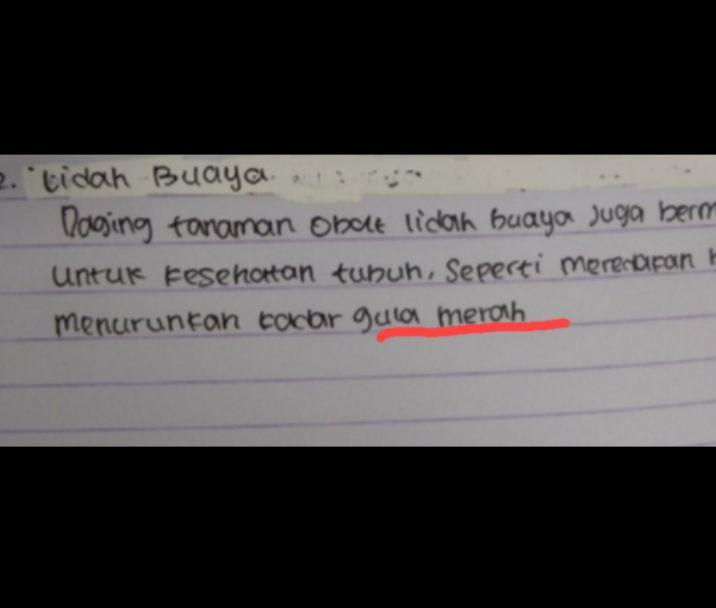 2. Lidah Buaya
Daging tanaman obat lidah buaya juga berm
untuk kesehatan tubuh, seperti meredakan
menurunkan kadar gula merah